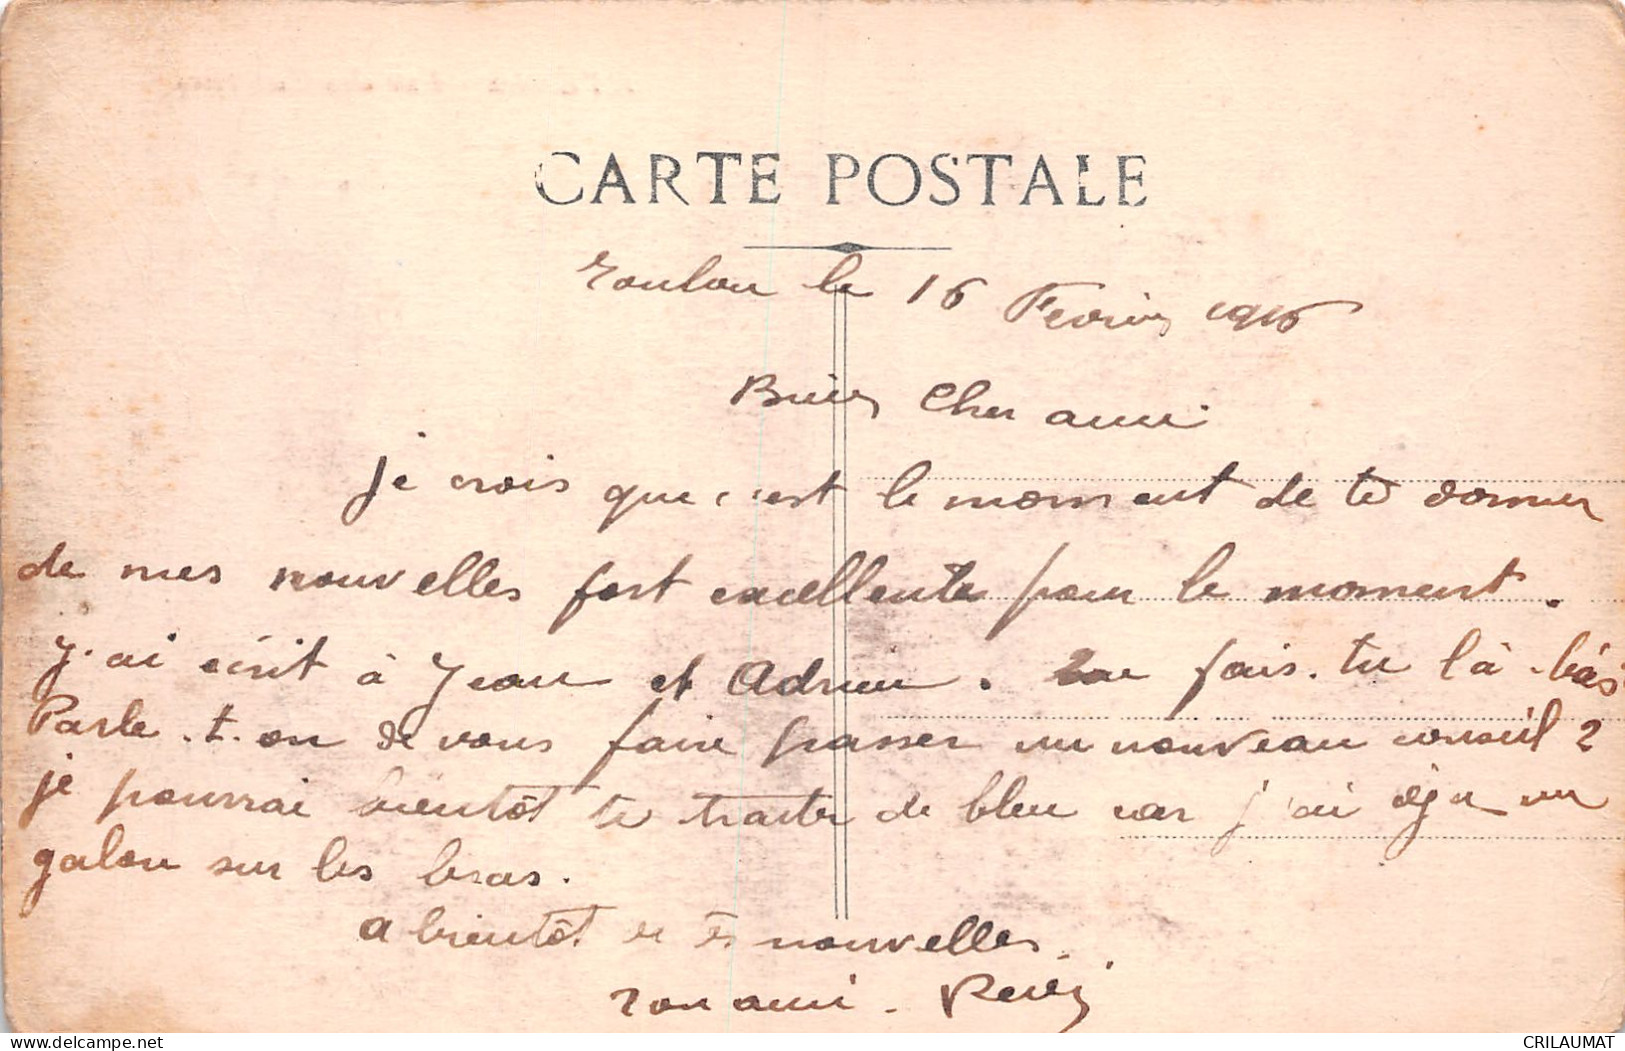 CARTE POSTALE
Toulon le 16 Fevrier 1916
Bien Cher ami
je crois que c'est le moment de te donner
de mes nouvelles fort excellente pour le moment.
J'ai écrit à Jean et Adrien. Que fais-tu là-bàs
Parle-t-on de vous faire passer un nouveau conseil?
je pourrai bientôt te traiter de bleu car j'ai déja un
galon sur les bras.
a bientôt de tes nouvelles.
Ton ami.
delcampe.net
CRILAUMAT